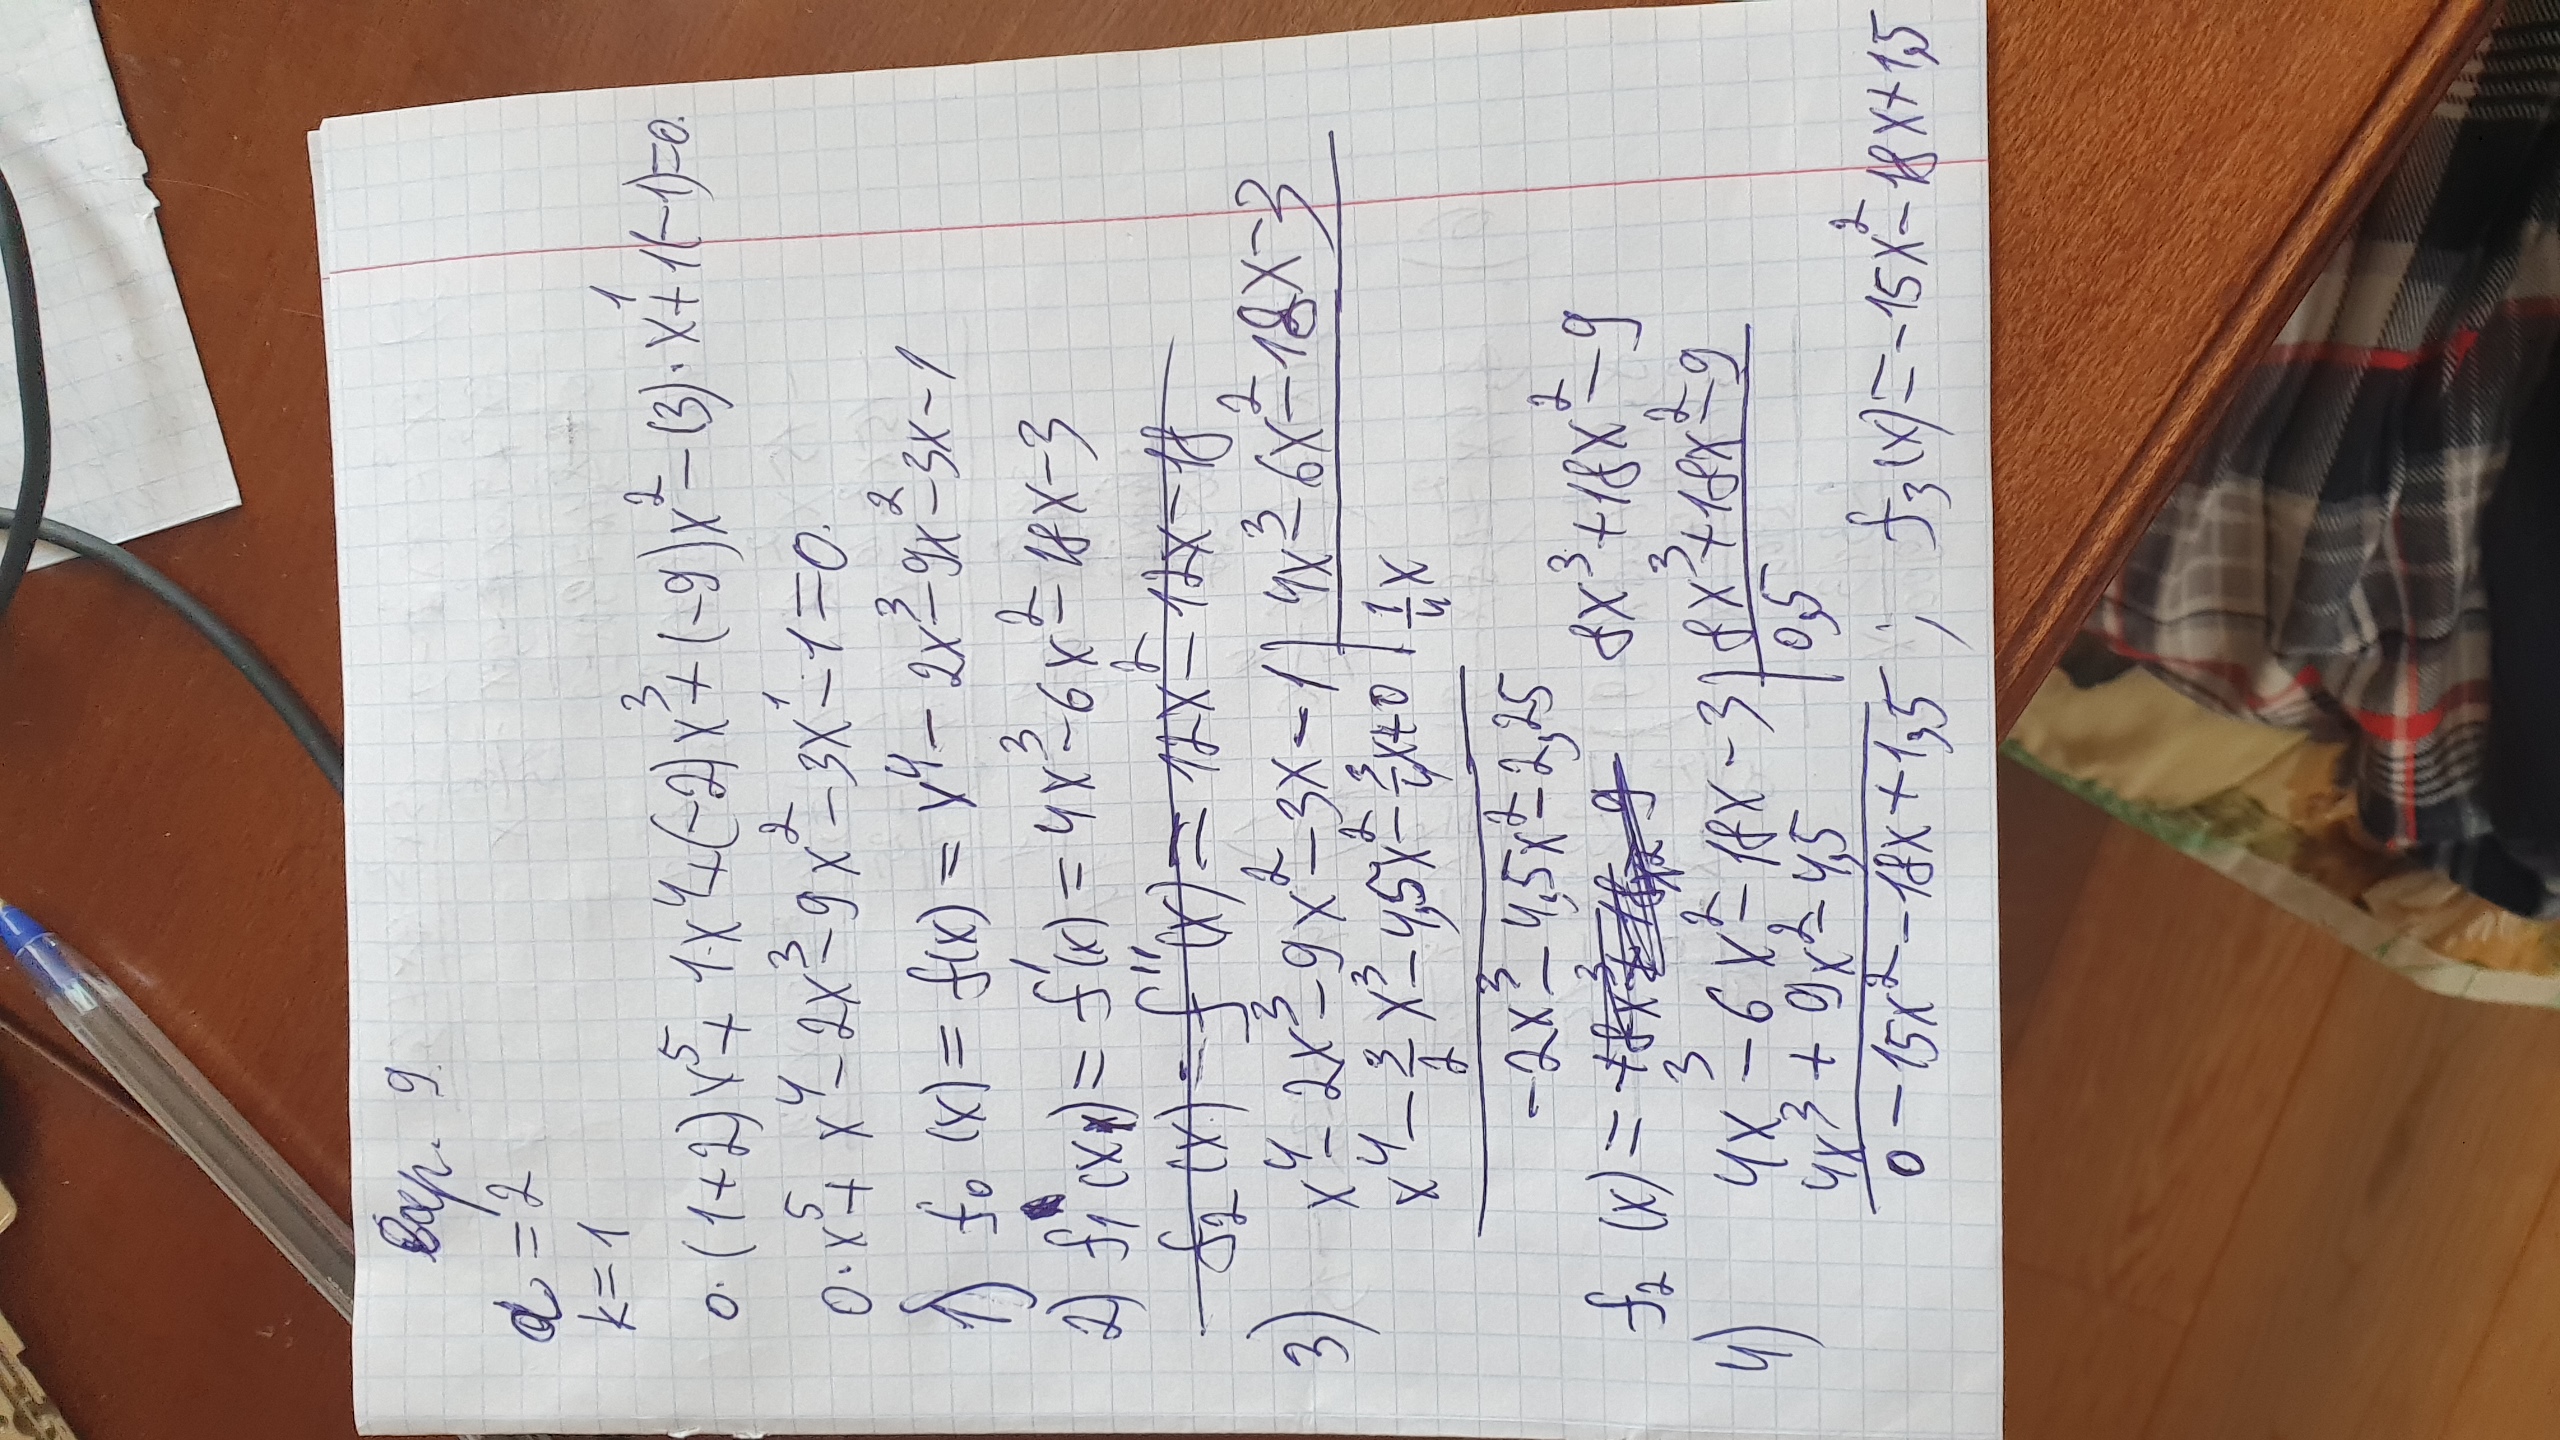 Вар. 9.
α = 2
k = 1
0·(1+2)x⁵ + 1·x⁴ + (-2)x³ + (-9)x² - (3)·x¹ + 1(-1) = 0.
0·x⁵ + x⁴ - 2x³ - 9x² - 3x¹ - 1 = 0.
1) f₀ (x) = f(x) = x⁴ - 2x³ - 9x² - 3x - 1
2) f₁ (x) = f'(x) = 4x³ - 6x² - 18x - 3
f₂ (x) = f''(x) = 12x² - 12x - 18
3) x⁴ - 2x³ - 9x² - 3x - 1 | 4x³ - 6x² - 18x - 3
x⁴ - 3/2 x³ - 4,5x² - 3/4 x + 0 | 1/4 x
-2x³ - 4,5x² - 2,25
f₂ (x) = 8x³ + 18x² - 9
4) 4x³ - 6x² - 18x - 3 | 8x³ + 18x² - 9
4x³ + 9x² - 4,5 | 0,5
0 - 15x² - 18x + 1,5 ; f₃(x) = -15x² - 18x + 1,5